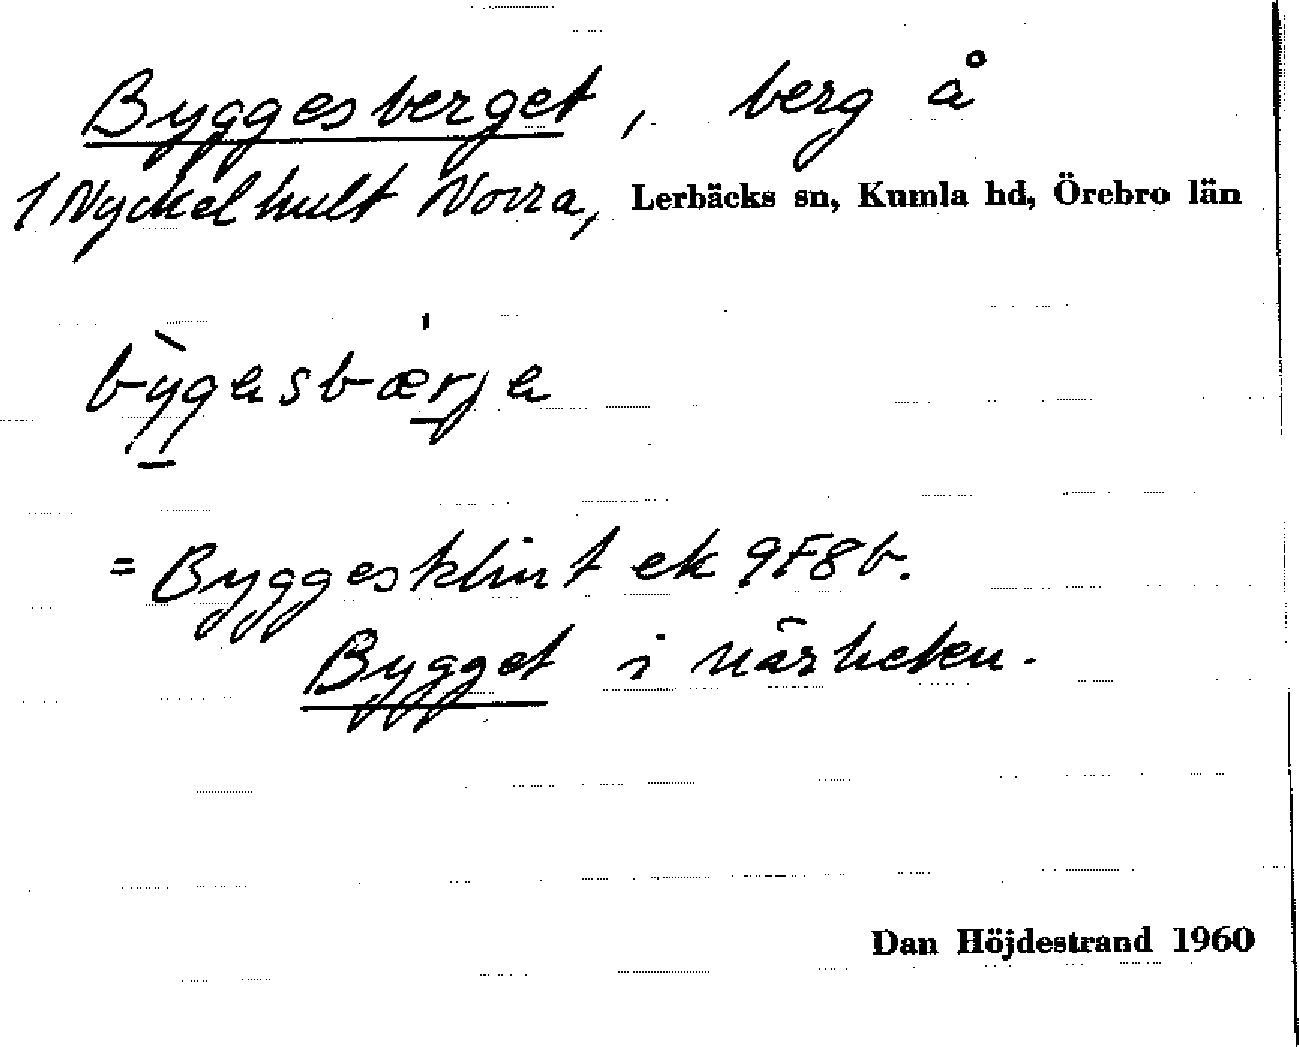 Byggesberget, berg å
1 Nyckelhult Norra, Lerbäcks sn, Kumla hd, Örebro län
bỳgesbærje
= Byggesklint ek 9F8b.
Bygget i närheten.
Dan Höjdestrand 1960